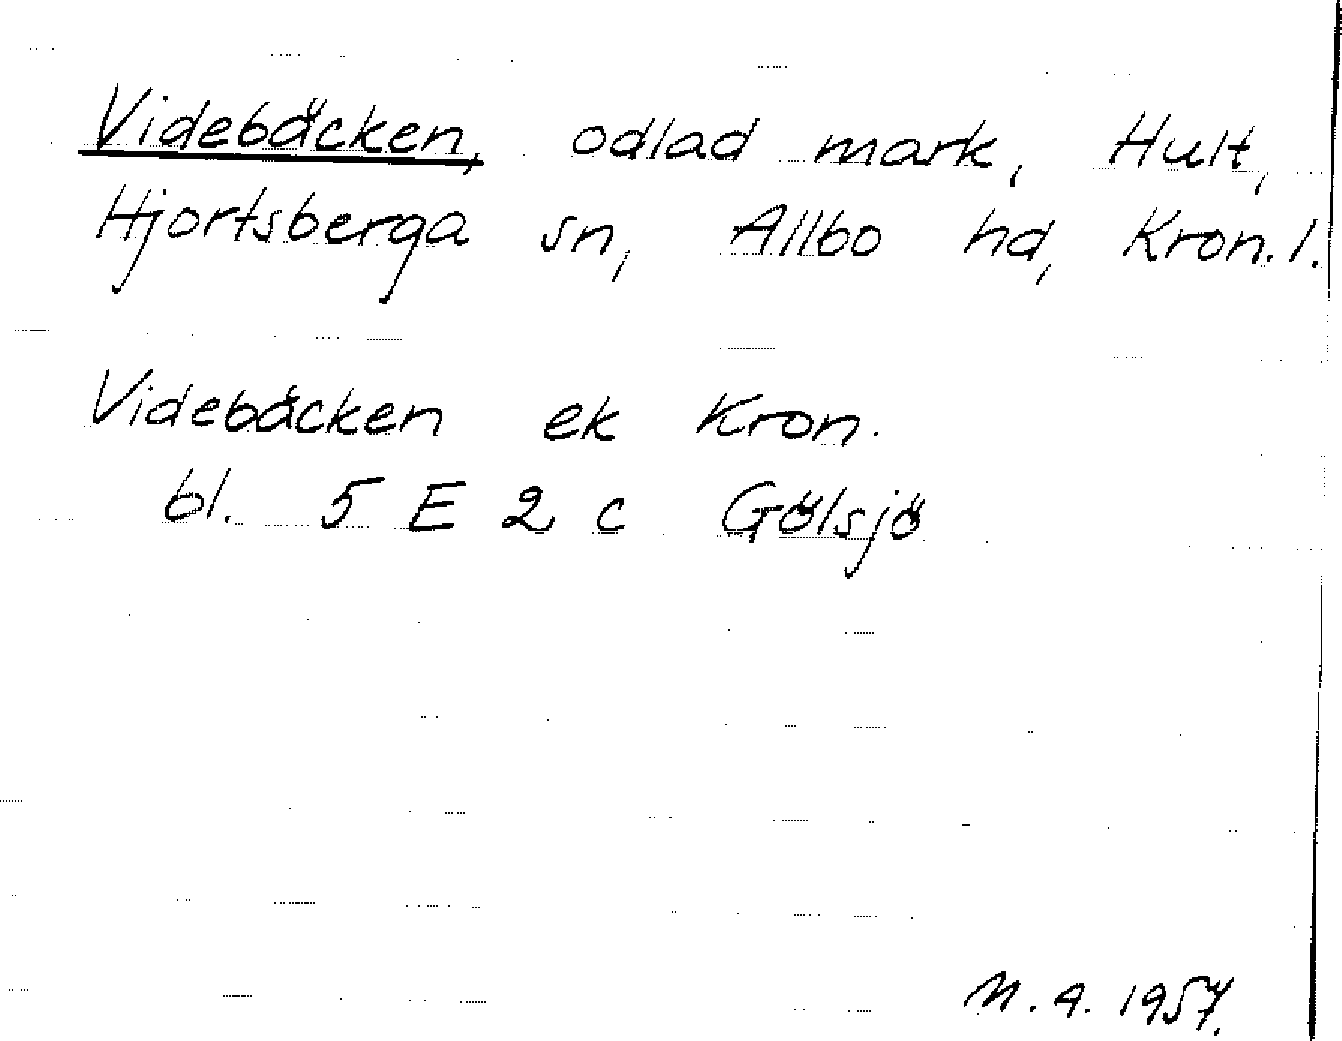 Videbäcken, odlad mark, Hult,
Hjortsberga sn, Allbo hd, Kron. l.
Videbäcken ek Kron.
bl. 5 E 2 c Gölsjö
M. A. 1957.